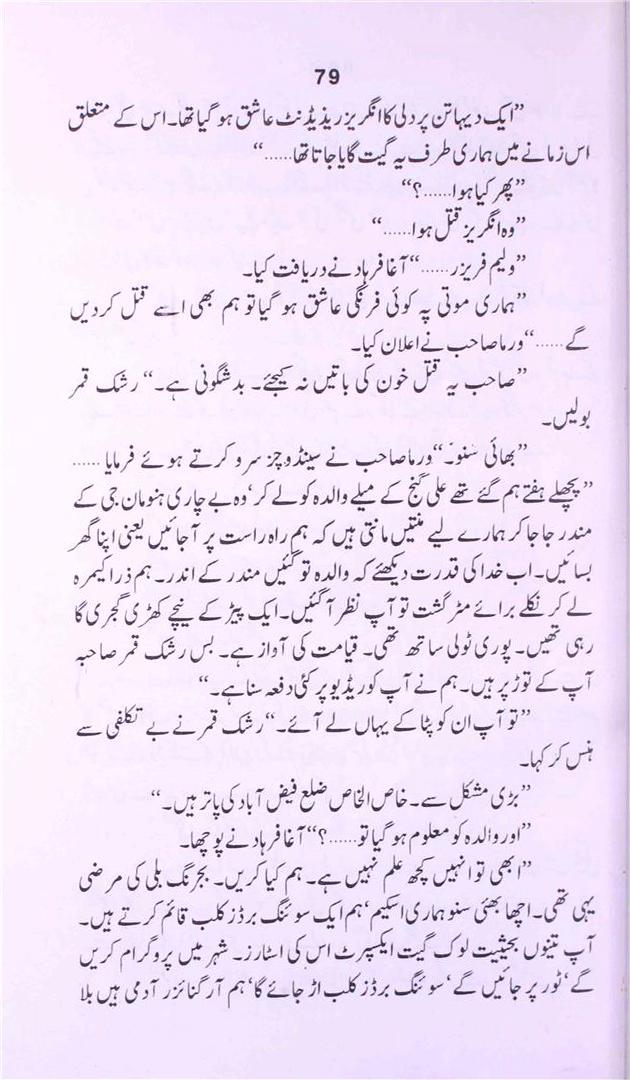 79
”ایک دیہاتن پر دلی کا انگریز ریذیڈنٹ عاشق ہو گیا تھا۔ اس کے متعلق
اس زمانے میں ہماری طرف یہ گیت گایا جاتا تھا......“
”پھر کیا ہوا......؟“
”وہ انگریز قتل ہوا......“
”ولیم فریزر......“ آغا فرہاد نے دریافت کیا۔
”ہماری موتی پہ کوئی فرنگی عاشق ہو گیا تو ہم بھی اسے قتل کر دیں
گے......“ ورما صاحب نے اعلان کیا۔
”صاحب یہ قتل خون کی باتیں نہ کیجئے۔ بدشگونی ہے۔“ رشک قمر
بولیں۔
”بھائی سنو۔“ ورما صاحب نے سینڈوچز سرو کرتے ہوئے فرمایا......
”پچھلے ہفتے ہم گئے تھے علی گنج کے میلے والدہ کو لے کر‘ وہ بے چاری ہنومان جی کے
مندر جا جا کر ہمارے لیے منتیں مانتی ہیں کہ ہم راہ راست پر آ جائیں یعنی اپنا گھر
بسائیں۔ اب خدا کی قدرت دیکھئے کہ والدہ تو گئیں مندر کے اندر۔ ہم ذرا کیمرہ
لے کر نکلے برائے مٹر گشت تو آپ نظر آ گئیں۔ ایک پیڑ کے نیچے کھڑی گجری گا
رہی تھیں۔ پوری ٹولی ساتھ تھی۔ قیامت کی آواز ہے۔ بس رشک قمر صاحبہ
آپ کے توڑ پر ہیں۔ ہم نے آپ کو ریڈیو پر کئی دفعہ سنا ہے۔“
”تو آپ ان کو پٹا کے یہاں لے آئے۔“ رشک قمر نے بے تکلفی سے
ہنس کر کہا۔
”بڑی مشکل سے۔ خاص الخاص ضلع فیض آباد کی پاتر ہیں۔“
”اور والدہ کو معلوم ہو گیا تو......؟“ آغا فرہاد نے پوچھا۔
”ابھی تو انہیں کچھ علم نہیں ہے۔ ہم کیا کریں۔ بجرنگ بلی کی مرضی
یہی تھی۔ اچھا بھئی سنو ہماری اسکیم‘ ہم ایک سوئنگ برڈز کلب قائم کرتے ہیں۔
آپ تینوں بحیثیت لوک گیت ایکسپرٹ اس کی اسٹارز۔ شہر میں پروگرام کریں
گے‘ ٹور پر جائیں گے‘ سوئنگ برڈز کلب اڑ جائے گا‘ ہم آرگنائزر آدمی ہیں بلا